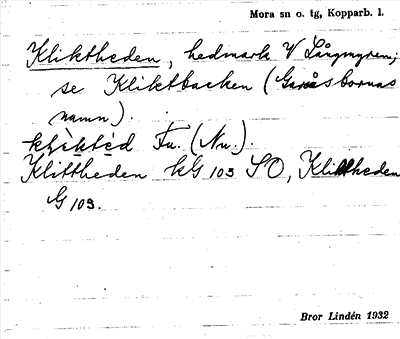 Mora sn o. tg, Kopparb. l.
Kliktheden, hedmark V Långmyren;
se Kliktbacken (Gesåsbornas
namn).
klikted Fu. (Nu.).
Klittheden kG 103 SO, Klittheden
G 103.
Bror Lindén 1932